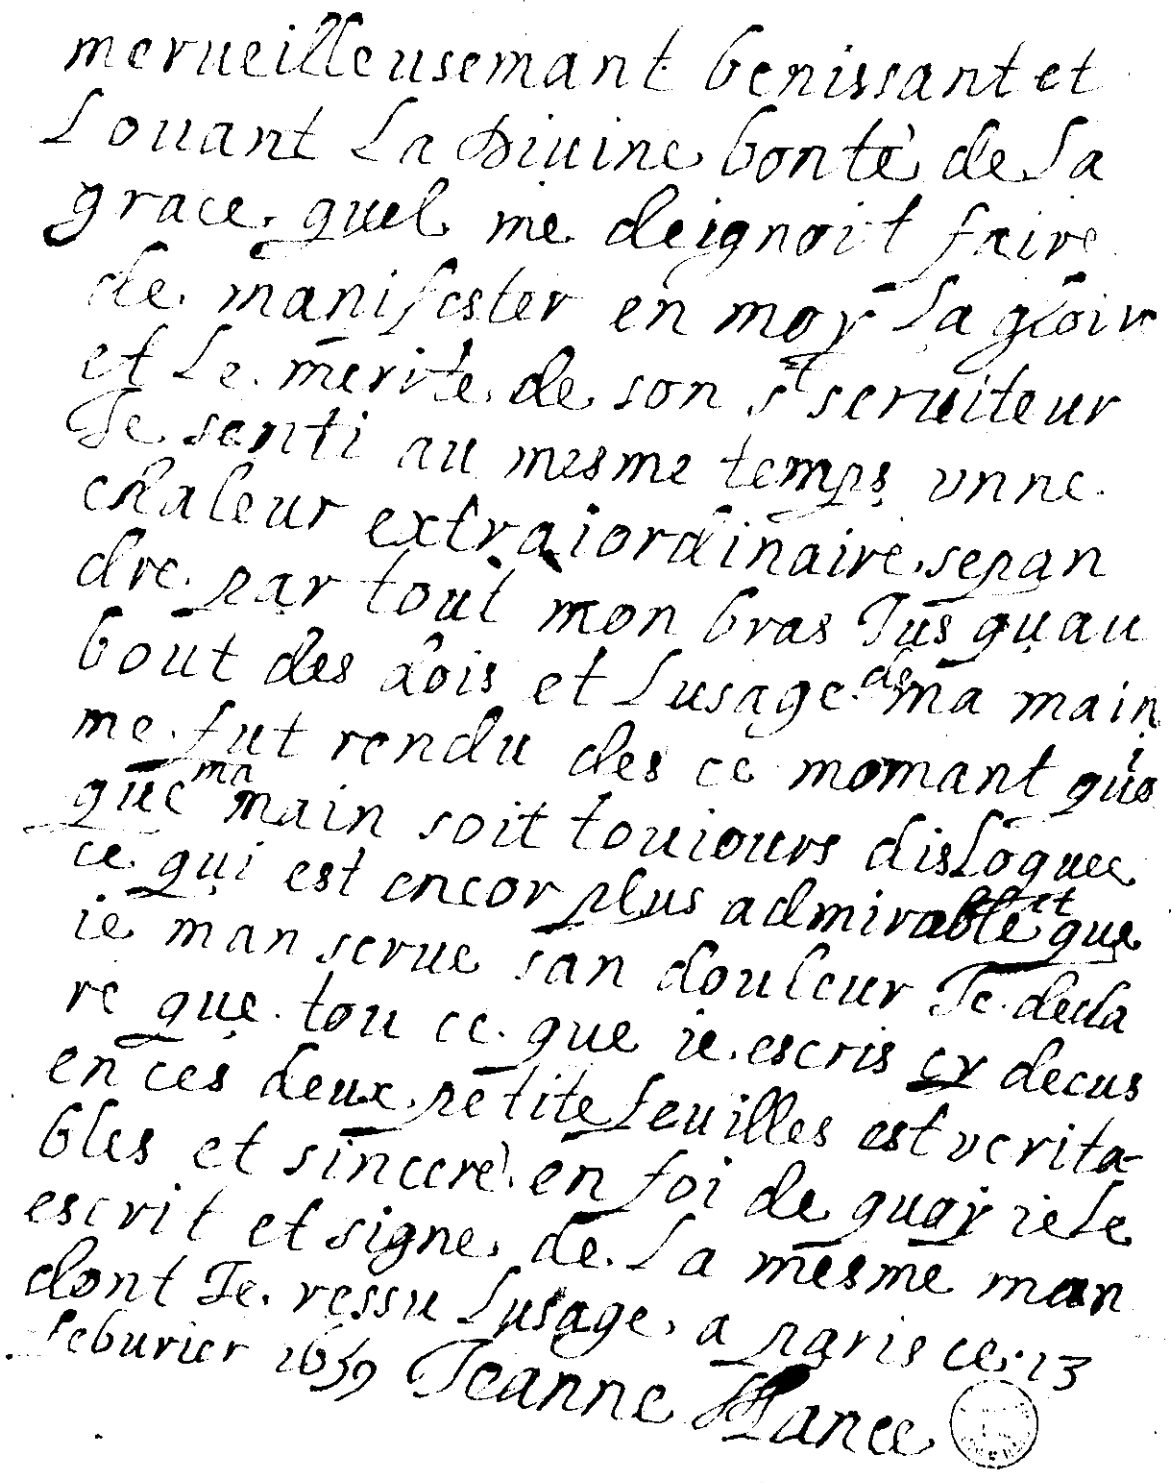 merueilleusemant benissant et
Louant La Diuine bonté de sa
grace quel me deignoit faire
de manifester en moy la gloir
et Le merite de son st seruiteur
Je senti au mesme temps vnne
chaleur extraiordinaire sepan
dre par tout mon bras Jusquau
bout des dois et Lusage de ma main
me fut rendu des ce momant quoi
que ma main soit touiours disloquee
ce qui est encor plus admirable et que
ie man serue san douleur Je decla
re que tou ce que ie escris cy decus
en ces deux petite feuilles est verita-
bles et sincere en foi de quoy ie Le
escrit et signe de La mesme man
dont Je ressu Lusage a paris ce 13
feburier 1659 Jeanne Mance